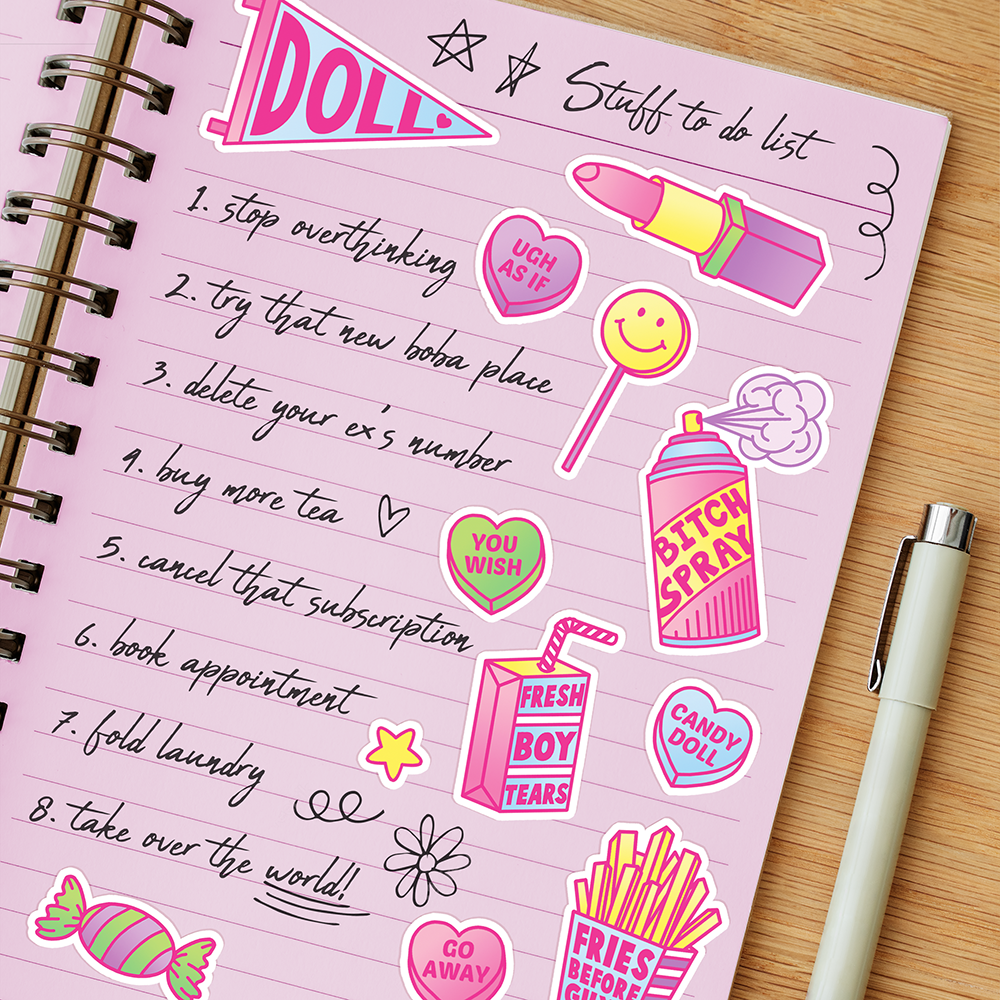 DOLL
Stuff to do list
1. stop overthinking
UGH
AS IF
2. try that new boba place
3. delete your ex's number
4. buy more tea
BITCH
SPRAY
YOU
WISH
5. cancel that subscription
6. book appointment
FRESH
BOY
TEARS
CANDY
DOLL
7. fold laundry
8. take over the world!
GO
AWAY
FRIES
BEFORE